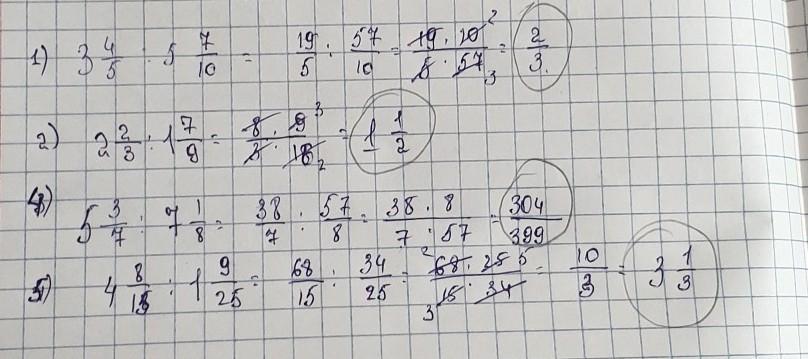 1) 3 4/5 : 5 7/10 = 19/5 : 57/10 = 19 · 10 2 / 5 · 57 3 = 2/3
2) 2 2/3 : 1 7/9 = 8 · 9 3 / 3 · 16 2 = 1 1/2
4) 5 3/7 : 7 1/8 = 38/7 : 57/8 = 38 · 8 / 7 · 57 = 304/399
5) 4 8/15 : 1 9/25 = 68/15 : 34/25 = 2 68 · 25 5 / 3 15 · 34 = 10/3 = 3 1/3